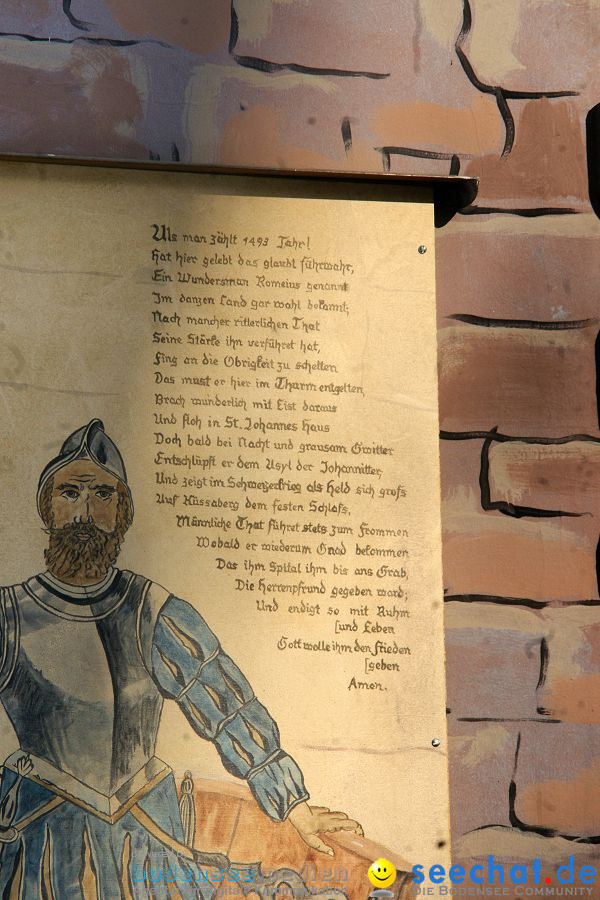 Als man zählt 1493 Jahr!
Hat hier gelebt das glaubt führwahr,
Ein Wundersman Romeius genannt
Im danzen Land gar wohl bekannt;
Nach mancher ritterlichen That
Seine Stärke ihn verführet hat,
Fing an die Obrigkeit zu schelten
Das must er hier im Thurm entgelten
Brach wunderlich mit List daraus
Und floh in St. Johannes Haus
Doch bald bei Nacht und grausam Gwitter
Entschlüpft er dem Asyl der Johannitter,
Und zeigt im Schweizerkrieg als Held sich groß
Auf Küssaberg dem festen Schloß,
Männliche That führet stets zum Frommen
Wobald er wiederum Gnad bekommen
Das ihm Spital ihm bis ans Grab,
Die Herrenpfrund gegeben ward;
Und endigt so mit Ruhm
[und Leben
Gott wolle ihm den Frieden
[geben
Amen.
seechat.de
Bodensee-Medien
Die Bodensee Community